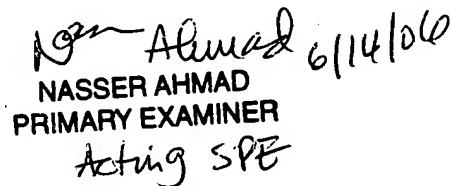 Ahmad 6/14/06
NASSER AHMAD
PRIMARY EXAMINER
Acting SPE